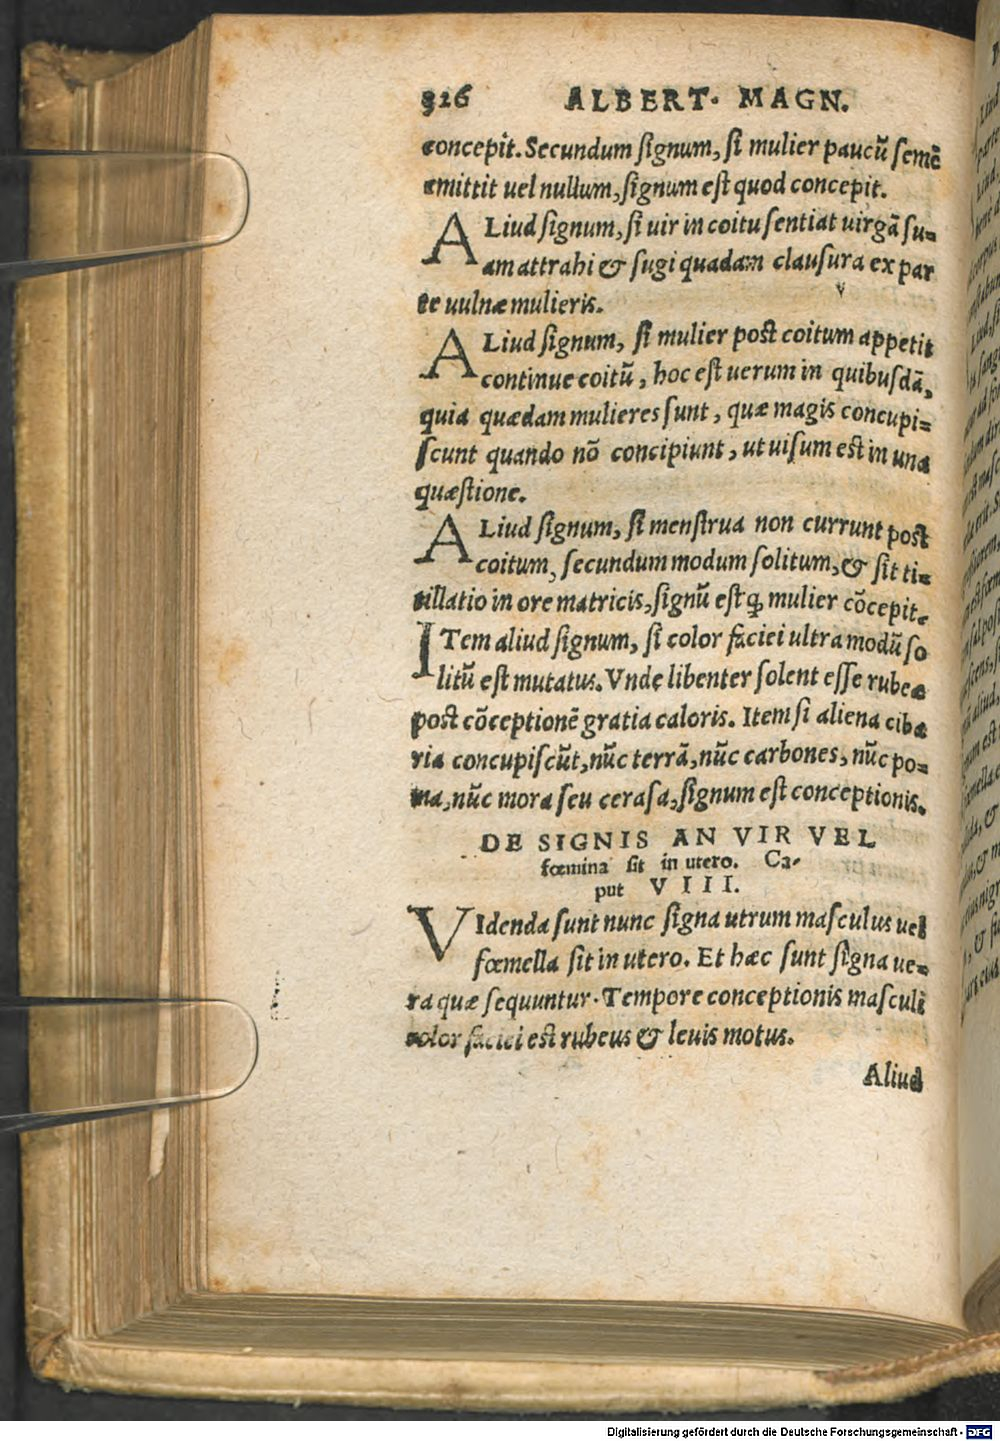 326 ALBERT. MAGN.
concepit. Secundum ſignum, ſi mulier paucũ ſemẽ
emittit uel nullum, ſignum eſt quod concepit.
ALiud ſignum, ſi uir in coitu ſentiat uirgã ſu=
am attrahi & ſugi quadam clauſura ex par
te uulnæ mulieris.
ALiud ſignum, ſi mulier poſt coitum appetit
continue coitũ, hoc eſt uerum in quibuſdã,
quia quædam mulieres ſunt, quæ magis concupi=
ſcunt quando nõ concipiunt, ut uiſum eſt in una
quæſtione.
ALiud ſignum, ſi menſtrua non currunt poſt
coitum, ſecundum modum ſolitum, & ſit ti=
tillatio in ore matricis, ſignũ eſt ꝙ mulier cõcepit.
ITem aliud ſignum, ſi color faciei ultra modũ ſo
litũ eſt mutatus. Vnde libenter ſolent eſſe rubeæ
poſt cõceptionẽ gratia caloris. Item ſi aliena ciba
ria concupiſcũt, nũc terrã, nũc carbones, nũc po=
ma, nũc mora ſeu ceraſa, ſignum eſt conceptionis.
DE SIGNIS AN VIR VEL
fœmina ſit in utero. Ca-
put VIII.
VIdenda ſunt nunc ſigna utrum maſculus uel
fœmella ſit in utero. Et hæc ſunt ſigna ue=
ra quæ ſequuntur. Tempore conceptionis maſculi
color faciei eſt rubeus & leuis motus.
Aliud
Digitalisierung gefördert durch die Deutsche Forschungsgemeinschaft - DFG